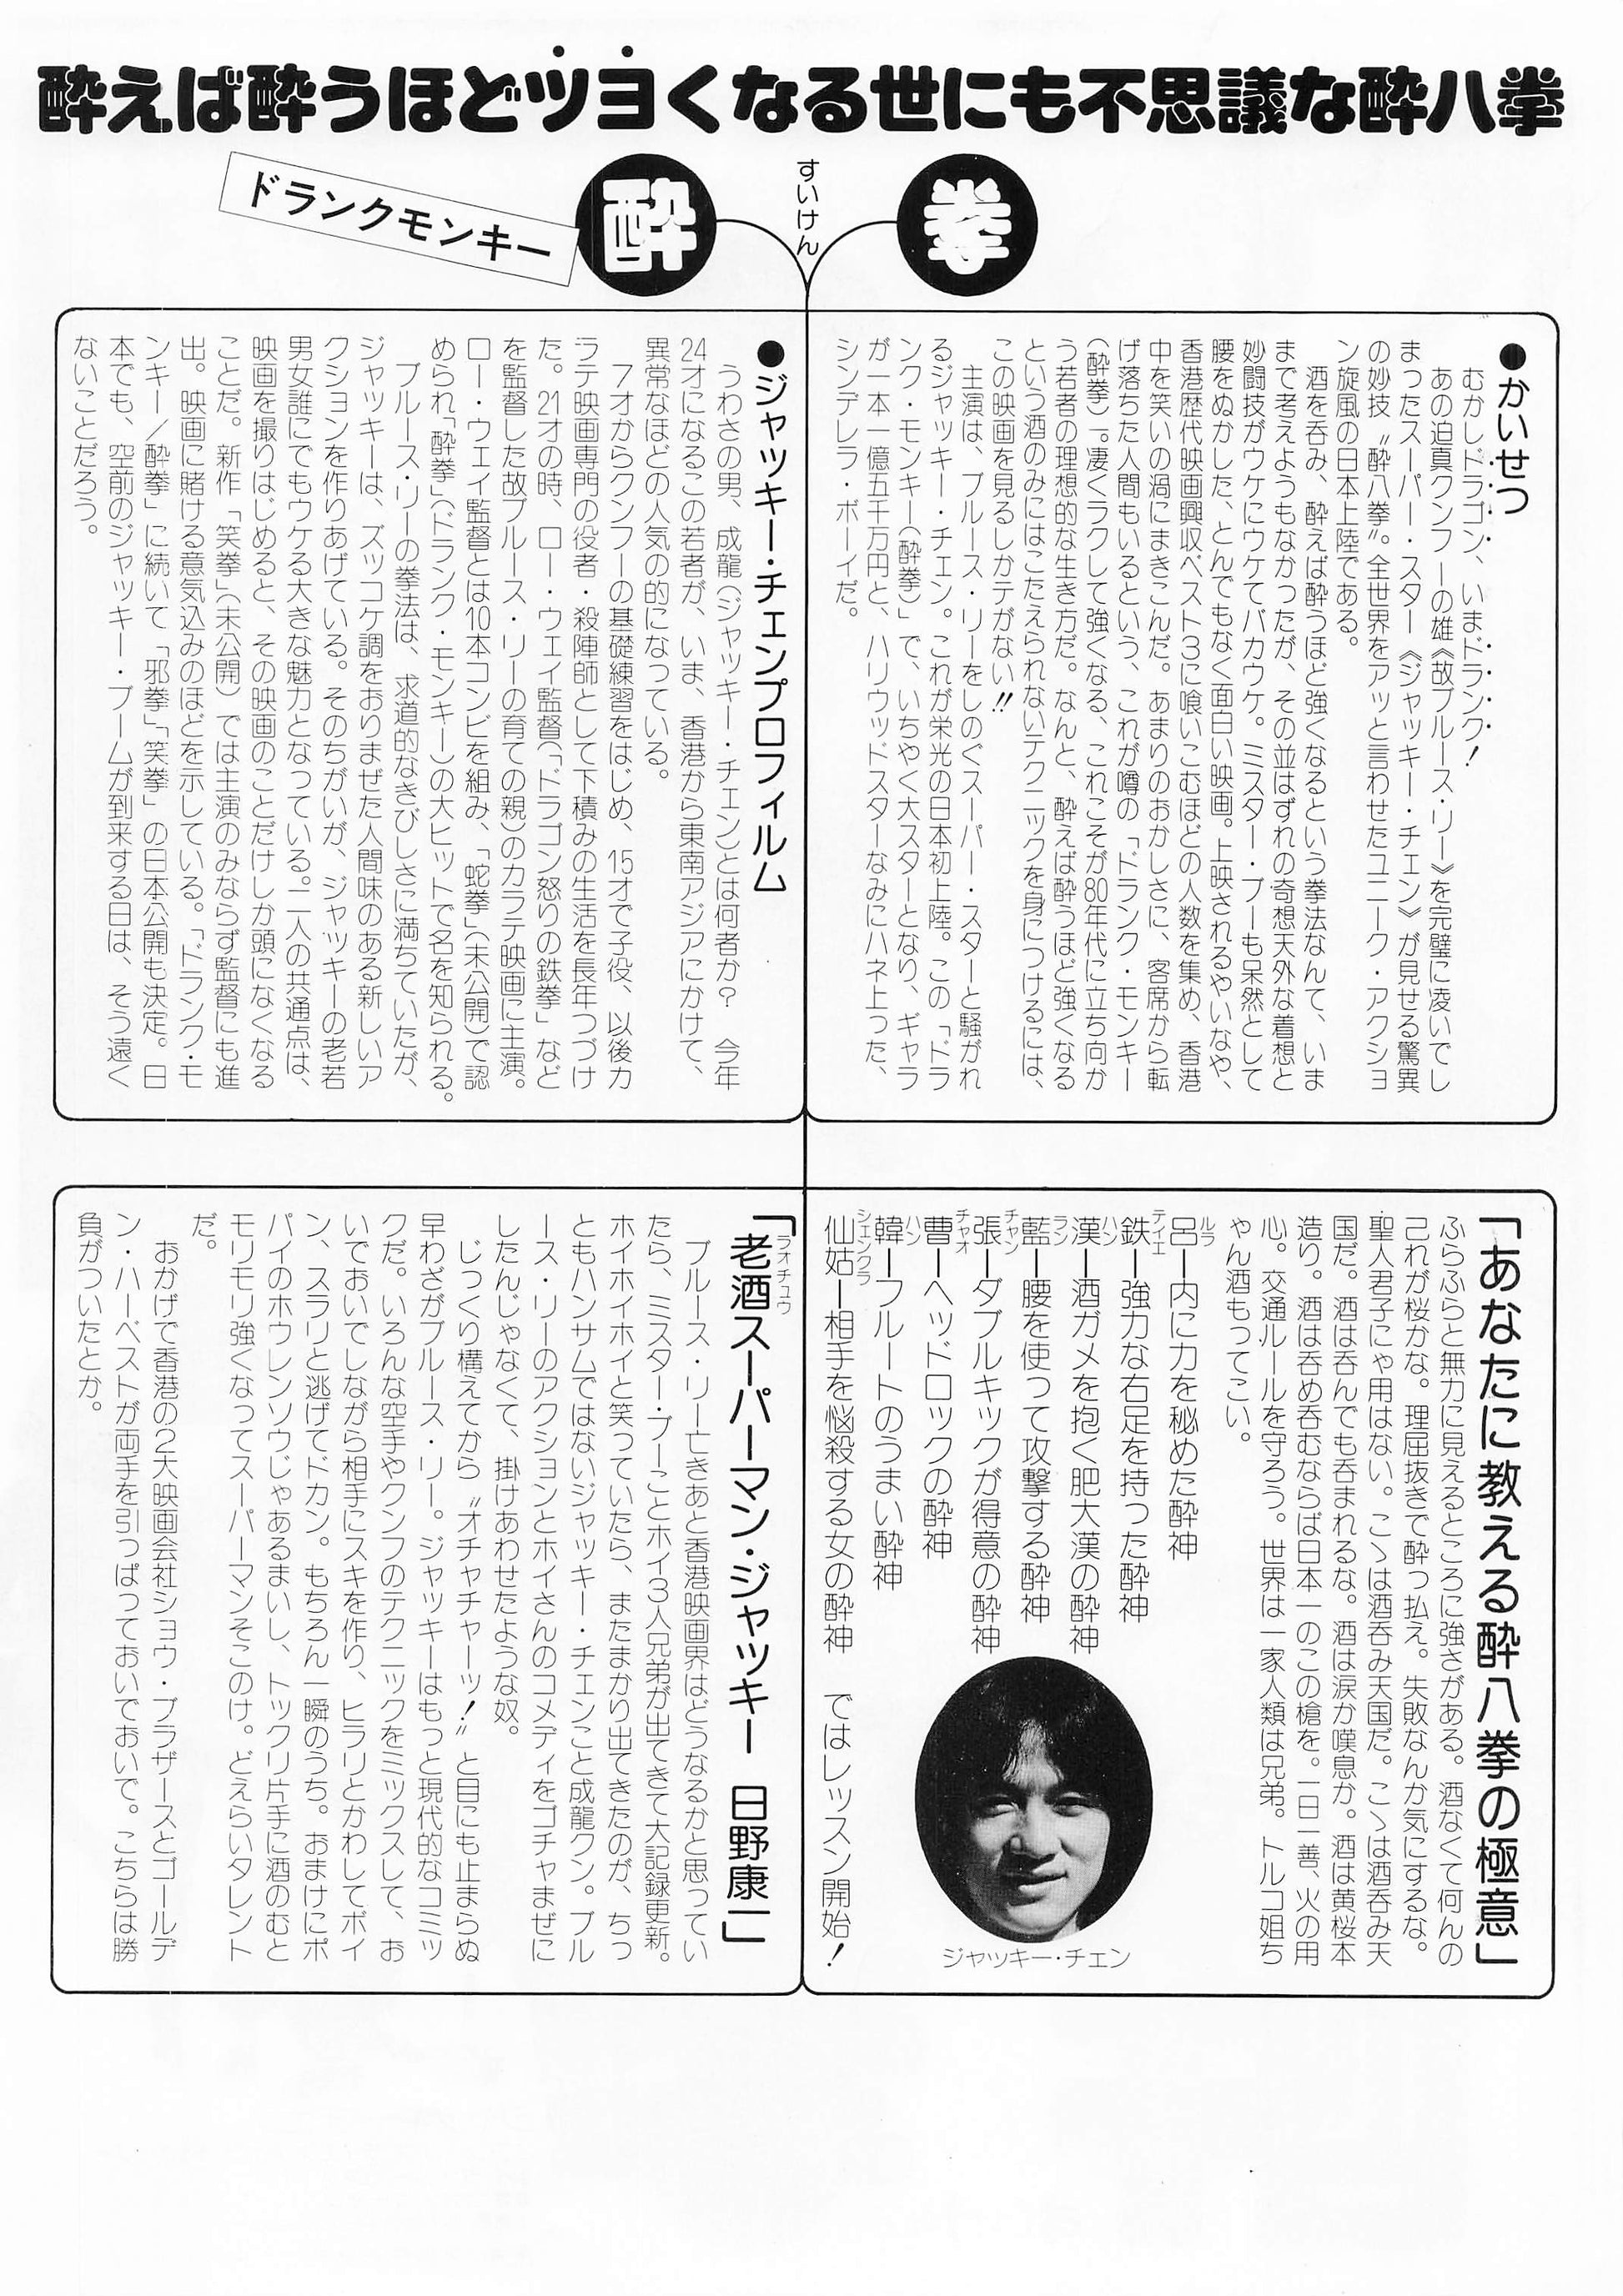 酔えば酔うほどツヨくなる世にも不思議な酔八拳
ドランクモンキー
酔
拳
すいけん
●かいせつ
むかしドラゴン、いまドランク!
あの迫真クンフーの雄《故ブルース・リー》を完璧に凌いでし
まったスーパー・スター《ジャッキー・チェン》が見せる驚異
の妙技〝酔八拳〟。全世界をアッと言わせたユニーク・アクショ
ン旋風の日本上陸である。
酒を呑み、酔えば酔うほど強くなるという拳法なんて、いま
まで考えようもなかったが、その並はずれの奇想天外な着想と
妙闘技がウケにウケてバカウケ。ミスター・ブーも呆然として
腰をぬかした、とんでもなく面白い映画。上映されるやいなや、
香港歴代映画興収ベスト3に喰いこむほどの人数を集め、香港
中を笑いの渦にまきこんだ。あまりのおかしさに、客席から転
げ落ちた人間もいるという、これが噂の「ドランク・モンキー
(酔拳)」。凄くラクして強くなる、これこそが80年代に立ち向か
う若者の理想的な生き方だ。なんと、酔えば酔うほど強くなる
という酒のみにはこたえられないテクニックを身につけるには、
この映画を見るしかテがない!!
主演は、ブルース・リーをしのぐスーパー・スターと騒がれ
るジャッキー・チェン。これが栄光の日本初上陸。この「ドラ
ンク・モンキー(酔拳)」で、いちやく大スターとなり、ギャラ
が一本一億五千万円と、ハリウッドスターなみにハネ上った、
シンデレラ・ボーイだ。
●ジャッキー・チェンプロフィルム
うわさの男、成龍(ジャッキー・チェン)とは何者か? 今年
24才になるこの若者が、いま、香港から東南アジアにかけて、
異常なほどの人気の的になっている。
7才からクンフーの基礎練習をはじめ、15才で子役、以後カ
ラテ映画専門の役者・殺陣師として下積みの生活を長年つづけ
た。21才の時、ロー・ウェイ監督(「ドラゴン怒りの鉄拳」など
を監督した故ブルース・リーの育ての親)のカラテ映画に主演。
ロー・ウェイ監督とは10本コンビを組み、「蛇拳」(未公開)で認
められ「酔拳」(ドランク・モンキー)の大ヒットで名を知られる。
ブルース・リーの拳法は、求道的なきびしさに満ちていたが、
ジャッキーは、ズッコケ調をおりまぜた人間味のある新しいア
クションを作りあげている。そのちがいが、ジャッキーの老若
男女誰にでもウケる大きな魅力となっている。二人の共通点は、
映画を撮りはじめると、その映画のことだけしか頭になくなる
ことだ。新作「笑拳」(未公開)では主演のみならず監督にも進
出。映画に賭ける意気込みのほどを示している。「ドランク・モ
ンキー/酔拳」に続いて「邪拳」「笑拳」の日本公開も決定。日
本でも、空前のジャッキー・ブームが到来する日は、そう遠く
ないことだろう。
「あなたに教える酔八拳の極意」
ふらふらと無力に見えるところに強さがある。酒なくて何んの
己れが桜かな。理屈抜きで酔っ払え。失敗なんか気にするな。
聖人君子にゃ用はない。こゝは酒呑み天国だ。こゝは酒呑み天
国だ。酒は呑んでも呑まれるな。酒は涙か嘆息か。酒は黄桜本
造り。酒は呑め呑むならば日本一のこの槍を。一日一善、火の用
心。交通ルールを守ろう。世界は一家人類は兄弟。トルコ姐ち
ゃん酒もってこい。
呂ルラー内に力を秘めた酔神
鉄ティエー強力な右足を持つた酔神
漢ハンー酒ガメを抱く肥大漢の酔神
藍ランー腰を使って攻撃する酔神
張チャンーダブルキックが得意の酔神
曹チャオーヘッドロックの酔神
韓ハンーフルートのうまい酔神
仙姑シェンクラー相手を悩殺する女の酔神 ではレッスン開始!
ジャッキー・チェン
「老酒ラオチュウスーパーマン・ジャッキー 日野康一」
ブルース・リー亡きあと香港映画界はどうなるかと思ってい
たら、ミスター・ブーことホイ3人兄弟が出てきて大記録更新。
ホイホイホイと笑っていたら、またまかり出てきたのが、ちっ
ともハンサムではないジャッキー・チェンこと成龍クン。ブル
ース・リーのアクションとホイさんのコメディをゴチャまぜに
したんじゃなくて、掛けあわせたような奴。
じっくり構えてから〝オチャチャーッ!〟と目にも止まらぬ
早わざがブルース・リー。ジャッキーはもっと現代的なコミッ
クだ。いろんな空手やクンフのテクニックをミックスして、お
いでおいでしながら相手にスキを作り、ヒラリとかわしてボイ
ン、スラリと逃げてドカン。もちろん一瞬のうち。おまけにポ
パイのホウレンソウじゃあるまいし、トックリ片手に酒のむと
モリモリ強くなってスーパーマンそこのけ。どえらいタレント
だ。
おかげで香港の2大映画会社ショウ・ブラザースとゴールデ
ン・ハーベストが両手を引っぱっておいでおいで。こちらは勝
負がついたとか。